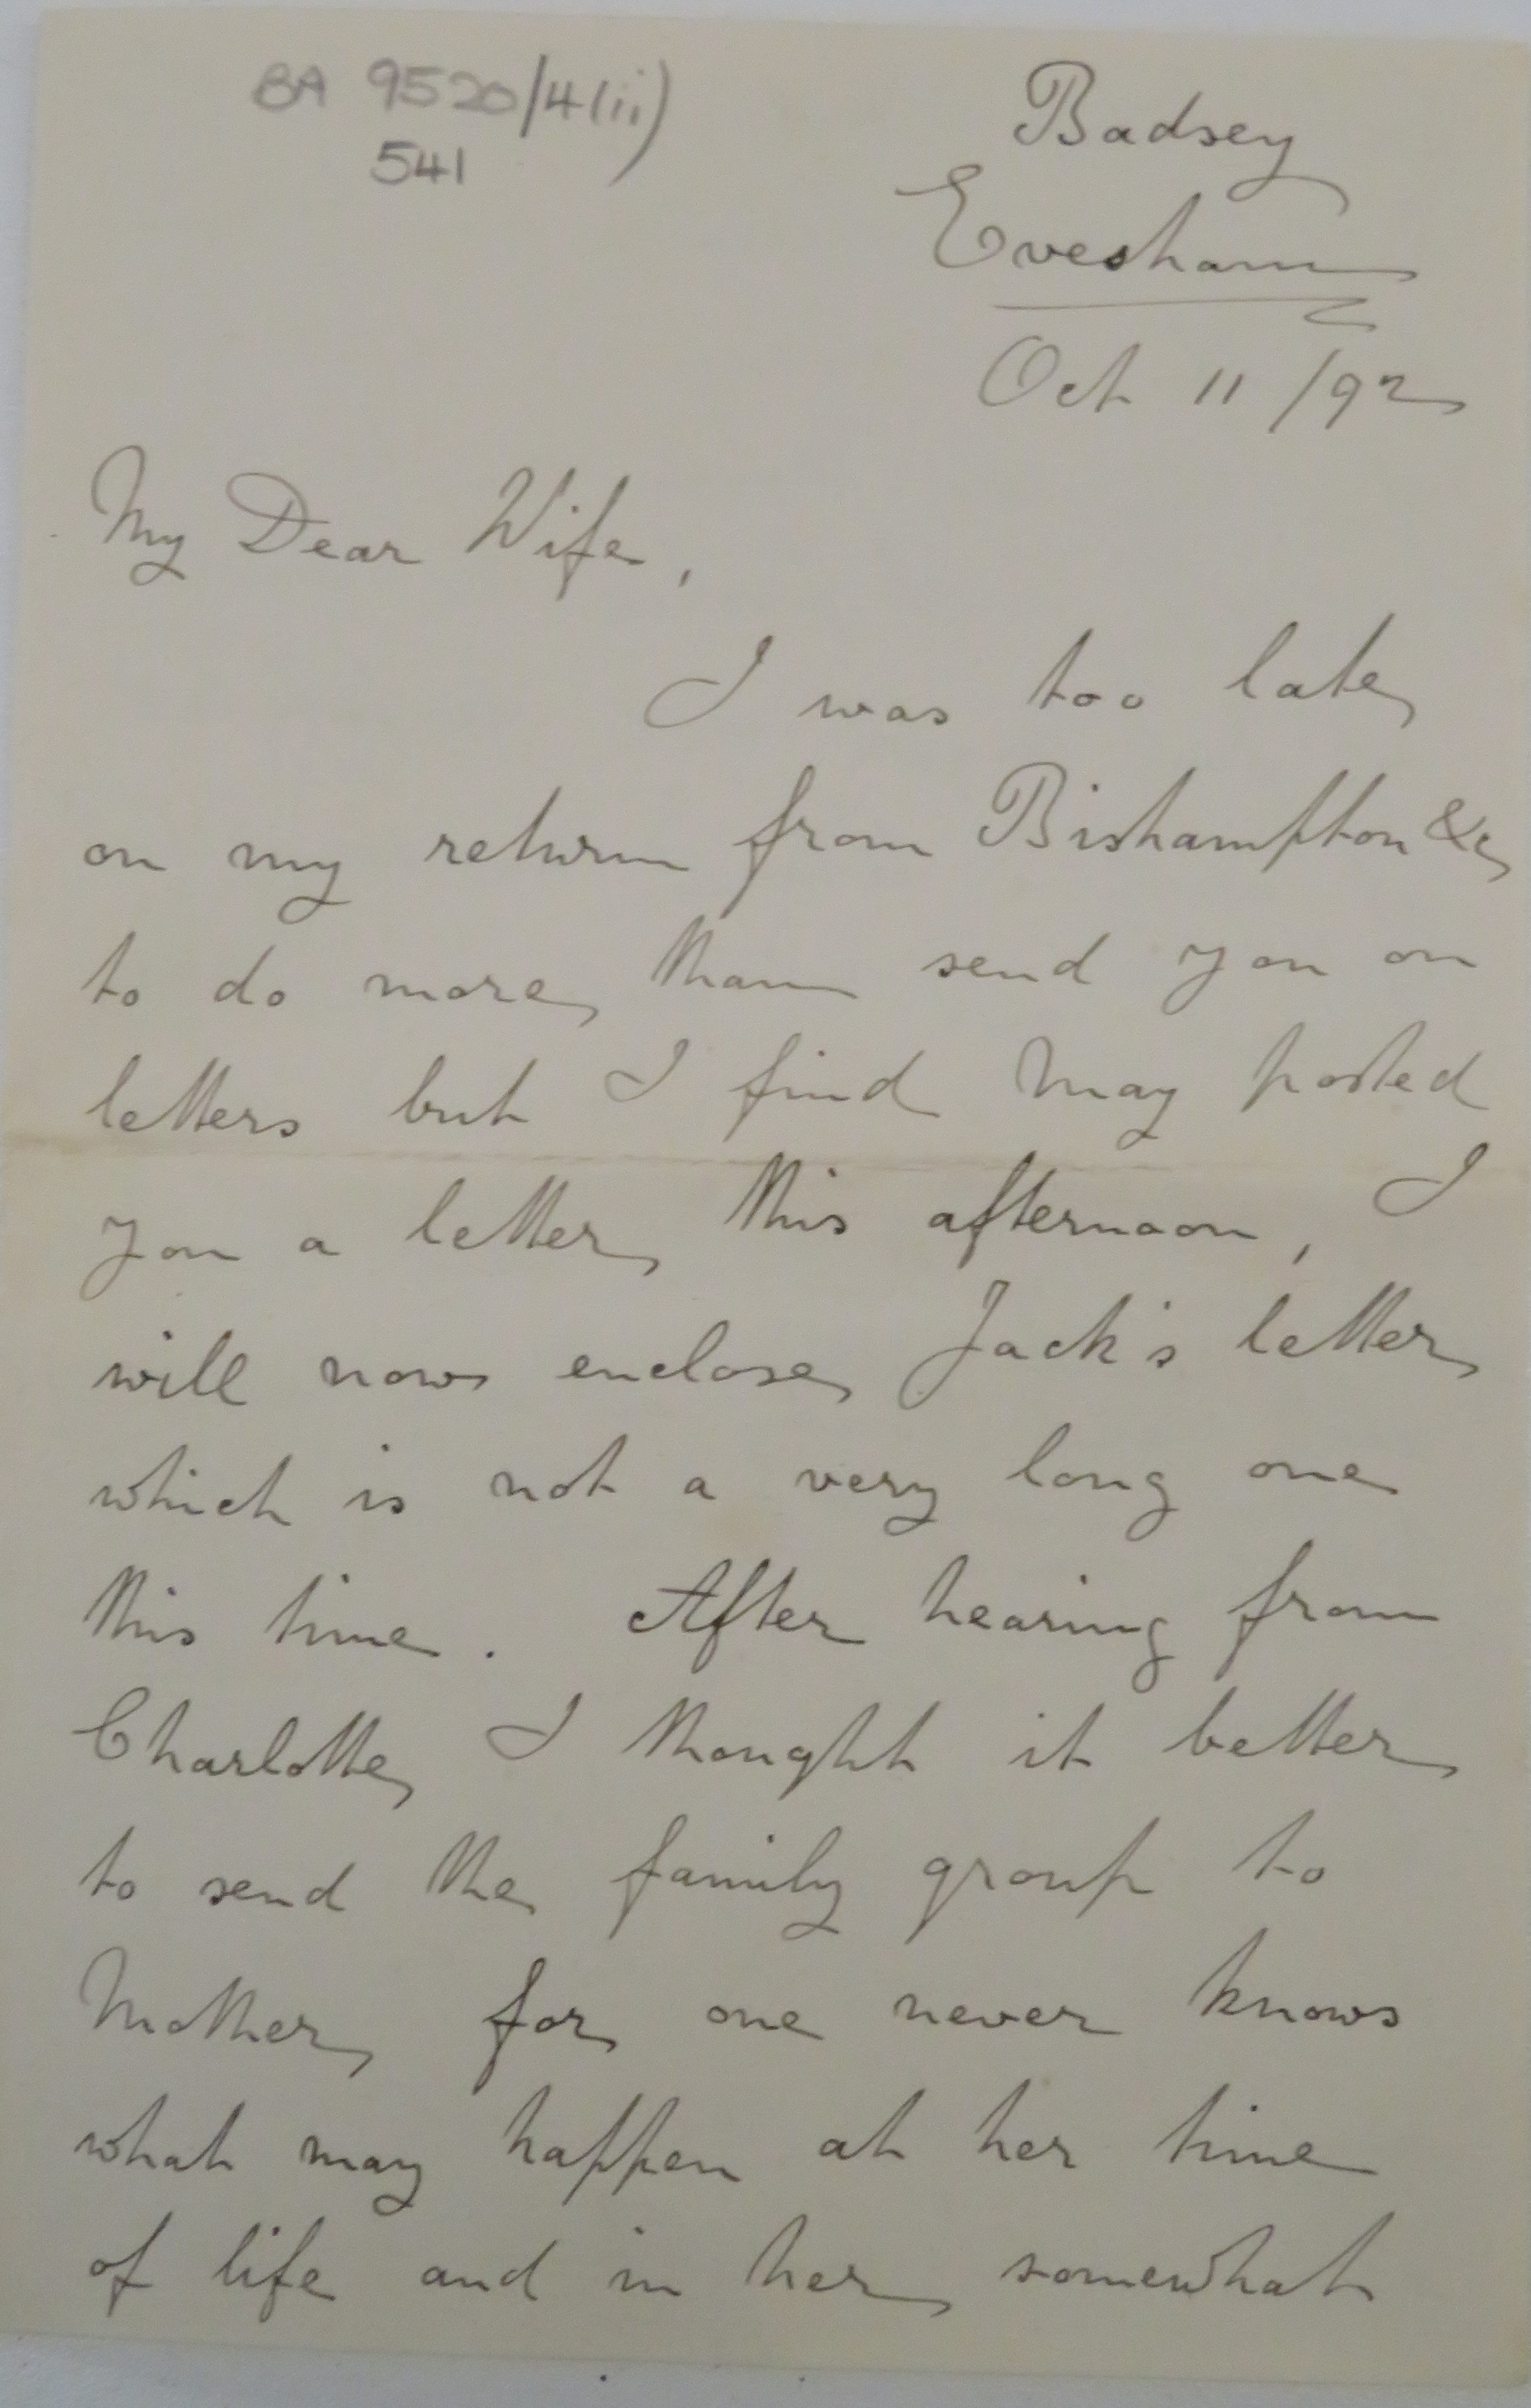 BA 9520/4(ii)
541
Badsey
Evesham
Oct 11 /92
My Dear Wife,
I was too late
on my return from Bishampton &c
to do more than send you on
letters but I find May posted
you a letter this afternoon, I
will now enclose Jack's letter
which is not a very long one
this time. After hearing from
Charlotte I thought it better
to send the family group to
Mother for one never knows
what may happen at her time
of life and in her somewhat